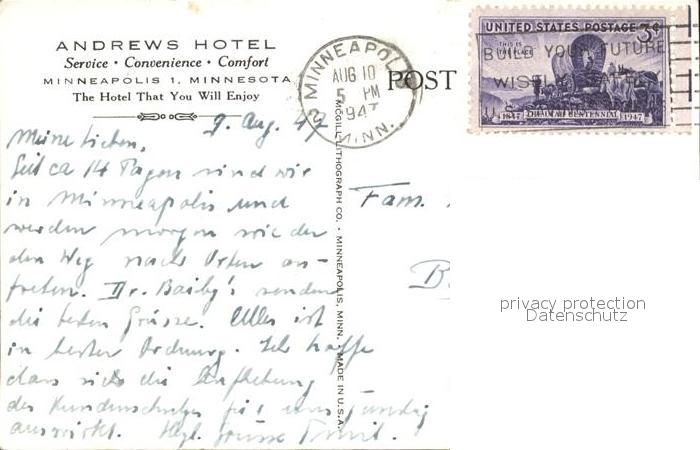 ANDREWS HOTEL
Service · Convenience · Comfort
MINNEAPOLIS 1, MINNESOTA
The Hotel That You Will Enjoy
MINNEAPOLIS
AUG 10
5 PM
1947
MINN.
2
POST
UNITED STATES POSTAGE 3¢
THIS IS THE PLACE
BUILD YOUR FUTURE
WISELY
1847 UTAH CENTENNIAL 1947
MCGILL LITHOGRAPH CO. · MINNEAPOLIS, MINN. · MADE IN U.S.A.
9. Aug. 47
Meine Lieben,
Seit ca 14 Tagen sind wir
in Minneapolis und
werden morgen wieder
den Weg nach Osten an-
treten. Dr. Baily's senden
die besten Grüsse. Alles ist
in bester Ordnung. Ich hoffe
dass sich die Aufhebung
des Kundenschutzes für uns günstig
auswirkt. Hzl. Grüsse
Fam.
B
privacy protection
Datenschutz